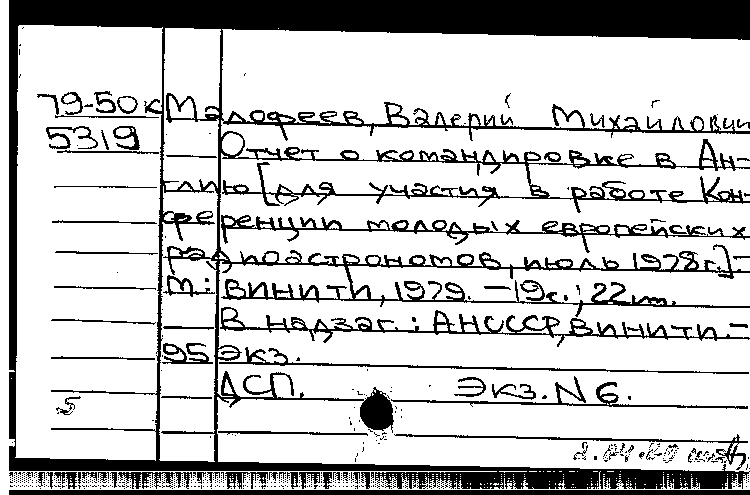 79-50к Малофеев, Валерий Михайлович
5319 Отчет о командировке в Ан-
глию [для участия в работе Кон-
ференции молодых европейских
радиоастрономов, июль 1978г.].-
М.: ВИНИТИ, 1979. - 19с.; 22см.
В надзаг.: АН СССР, ВИНИТИ. -
95 экз.
ДСП. Экз. N 6.
5